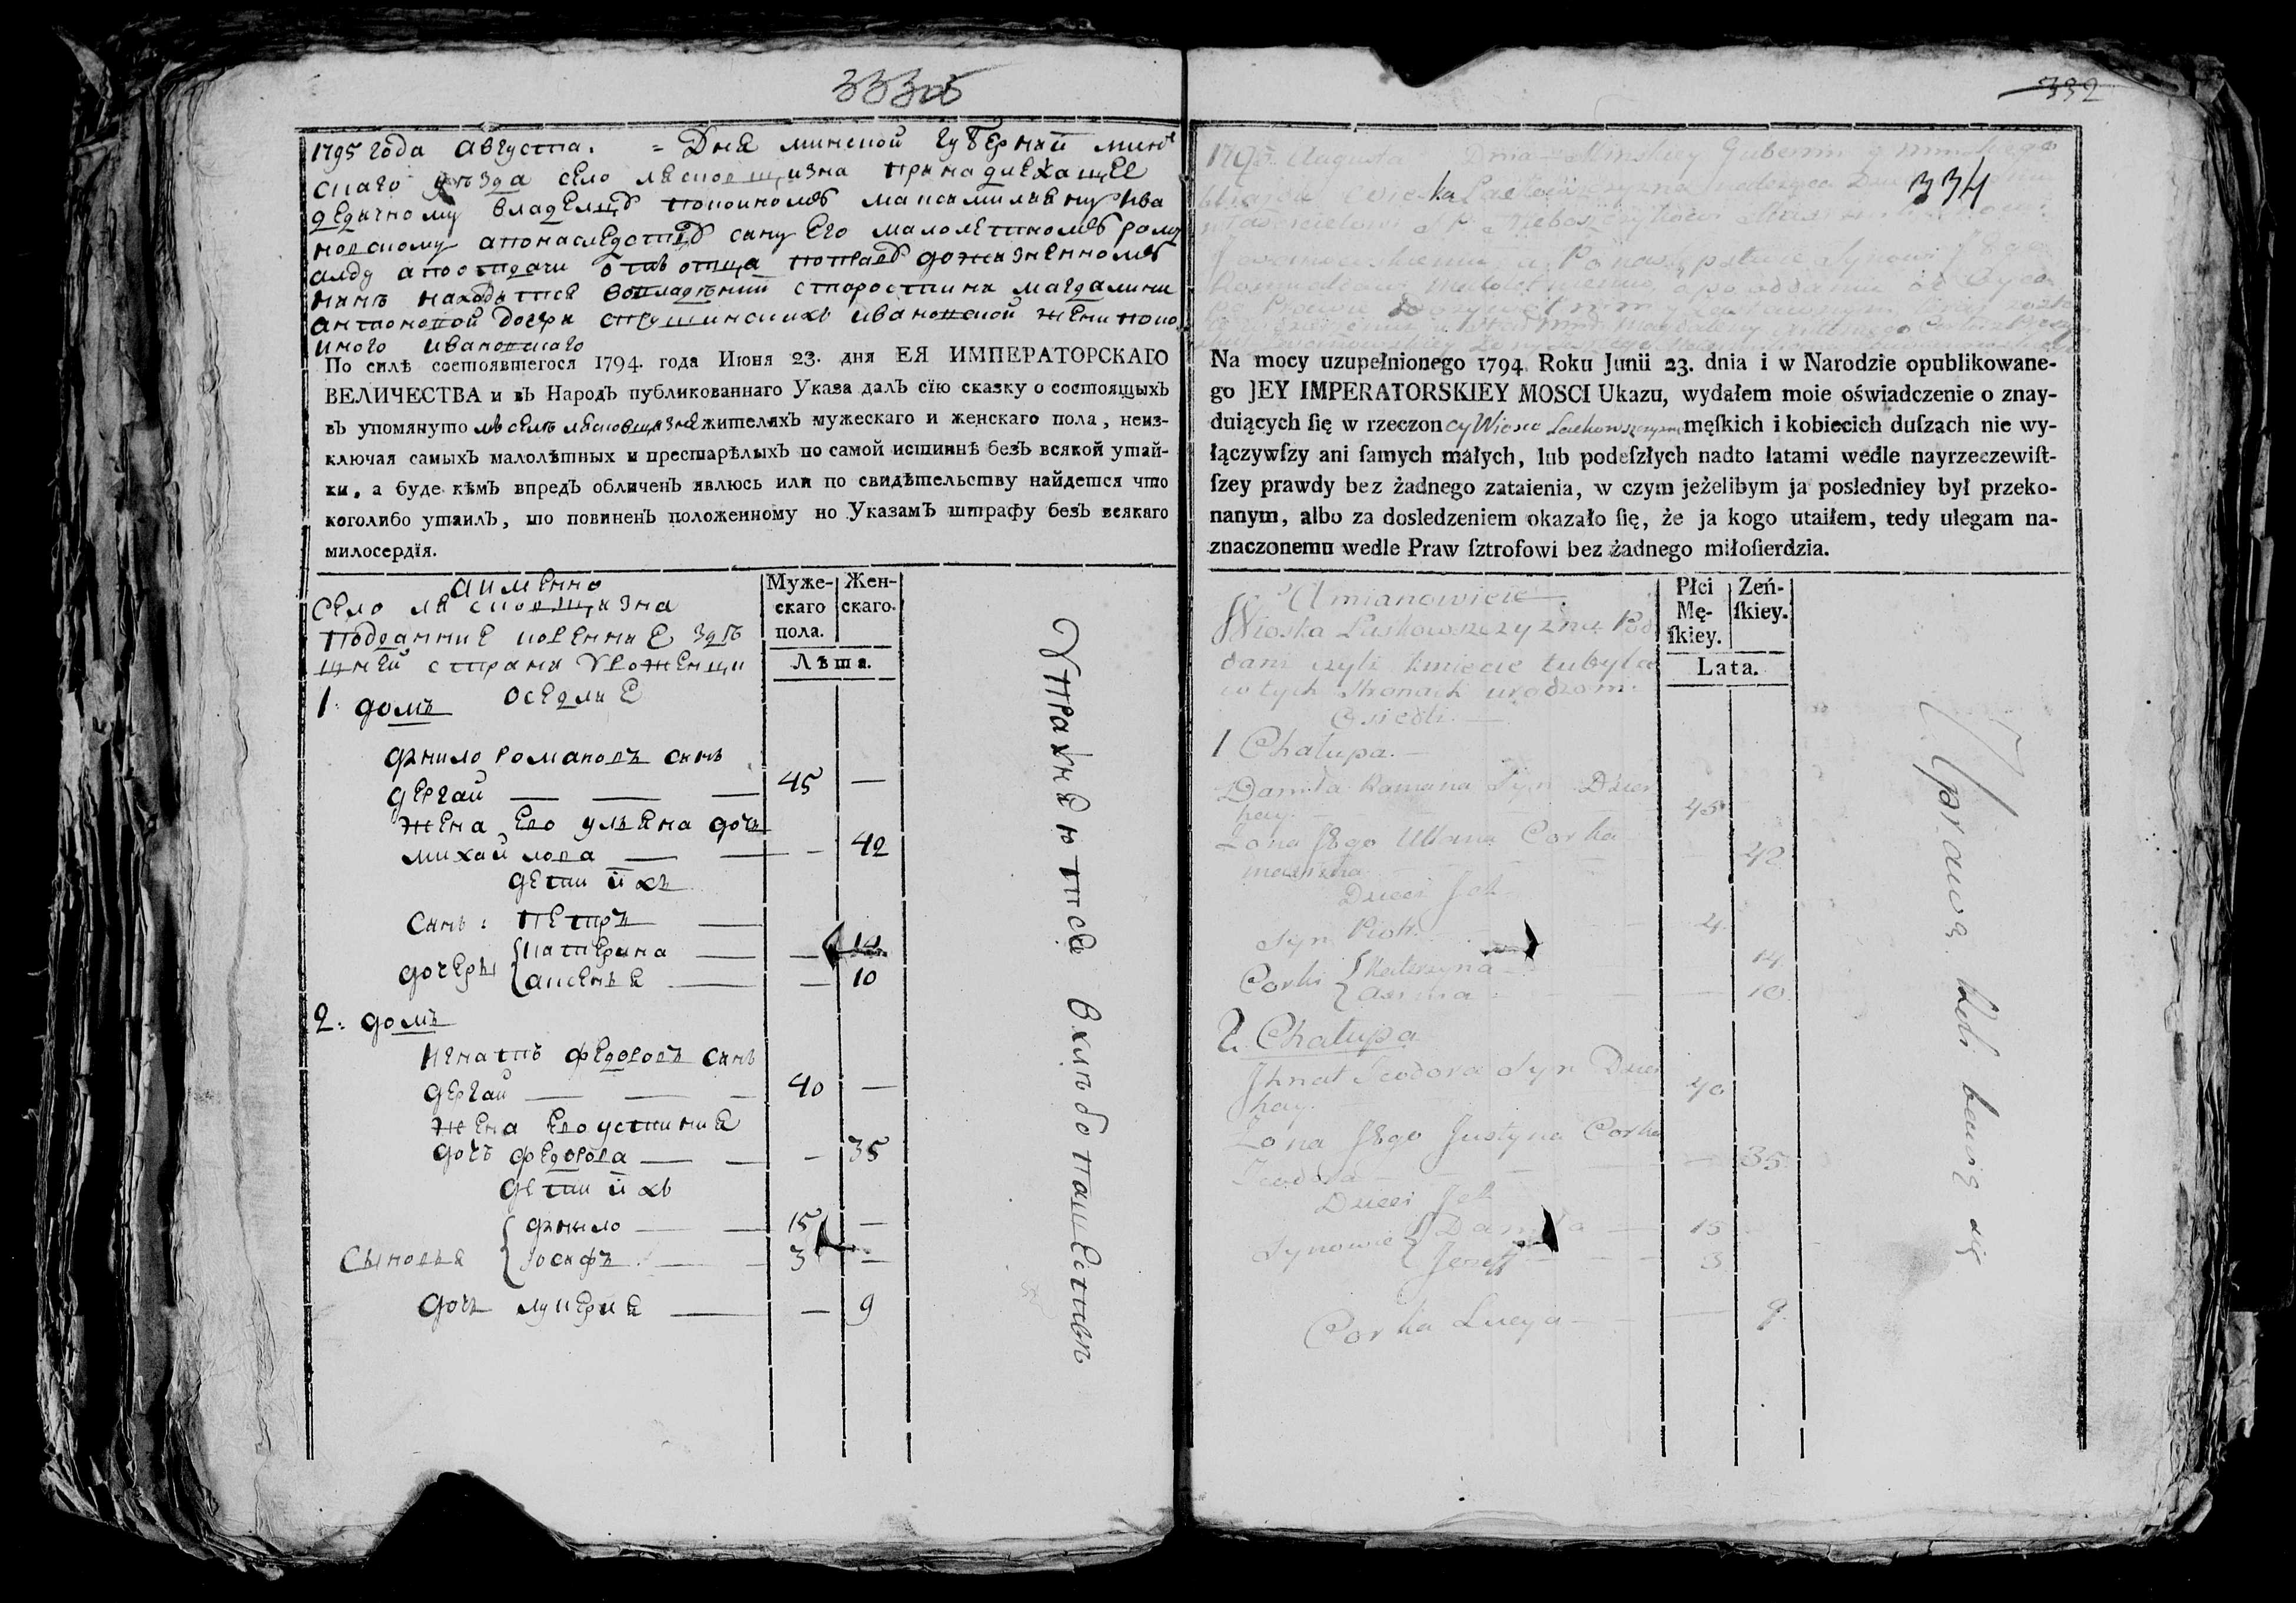 1795 года августа. = Дня минской губернии минс
скаго уѣзда село лясковщизна принадлежащее
дедичному владелцу покойному максимиляну ива
новскому апонаследстве сыну его малолетному рому
алду апоотдачи отъ отца поправу дожизненному
нинѣ находится вовладѣнии старостини магдалини
антоновой дочри стришинскихъ ивановской жени поко
иного ивановскаго
По силѣ состоявшегося 1794. года Июня 23. дня ЕЯ ИМПЕРАТОРСКАГО
ВЕЛИЧЕСТВА и въ Народъ публикованнаго Указа далъ сїю сказку о состоящыхъ
въ упомянуто мъ селѣ лясковщизне жителяхъ мужескаго и женскаго пола, неиз-
ключая самыхъ малолѣтныхъ и престарѣлыхъ по самой истиннѣ безъ всякой утай-
ки, а буде кѣмъ впредь обличенъ явлюсь или по свидѣтельству найдется что
коголибо утаилъ, то повиненъ положенному по Указамъ штрафу безъ всякаго
милосердїя.
аименно
Село лясковщизна
подданние коренние здѣ
шней страни уроженци
оседлие
Муже-
скаго
пола.
Жен-
скаго.
Лѣта.
1: домъ
данило романовъ синъ
дергай — — — 45 —
жена его улляна дочь
михайлова — — — 42
дети ихъ
Синъ: петръ —
дочеры катерина — — 14
аксеня — — 10
2: домъ
игнатъ федоровъ синъ
дергай — — — 40 —
жена его устиния
дочъ федорова — — — 35
дети ихъ
Сыновья данило — — 15 —
иосифъ — — 3 —
дочь лукерия — — 9
Упражняются вхлѣбопашествѣ
332
334
1795. Augusta Dnia Minskiey Gubernii
Na mocy uzupełnionego 1794. Roku Junii 23. dnia i w Narodzie opublikowane-
go JEY IMPERATORSKIEY MOSCI Ukazu, wydałem moie oświadczenie o znay-
duiących ſię w rzeczon cy Wiosce Laskowszczyznie męſkich i kobiecich duſzach nie wy-
łączywſzy ani ſamych małych, lub podeſzłych nadto latami wedle nayrzeczewiſt-
ſzey prawdy bez żadnego zataienia, w czym jeżelibym ja posledniey był przeko-
nanym, albo za dosledzeniem okazało ſię, że ja kogo utaiłem, tedy ulegam na-
znaczonemu wedle Praw ſztrofowi bez żadnego miłoſierdzia.
Amianowicie
Wioska Laskowszczyzna Pod
dani czyli kmiecie tubylce
w tych Stronach urodzeni.
Osiedli. —
Płci
Mę-
ſkiey.
Zeń-
ſkiey.
Lata.
1 Chałupa. —
Daniła Ramana Syn Dzier
hay. — 45
Zona Jego Ullana Corka
— 42
Dzieci Jch
Syn Piotr. — 4
Corki Katerzyna — 14
Axinia — 10
2. Chałupa
Jhnat Teodora Syn Dzier
hay. 40
Zona Jego Justyna Corka
Teodora — 35
Dzieci Jch
Synowie Daniła — 15
Jozeff — 3
Corka Lucya — 9.
Uprawą Roli bawią się